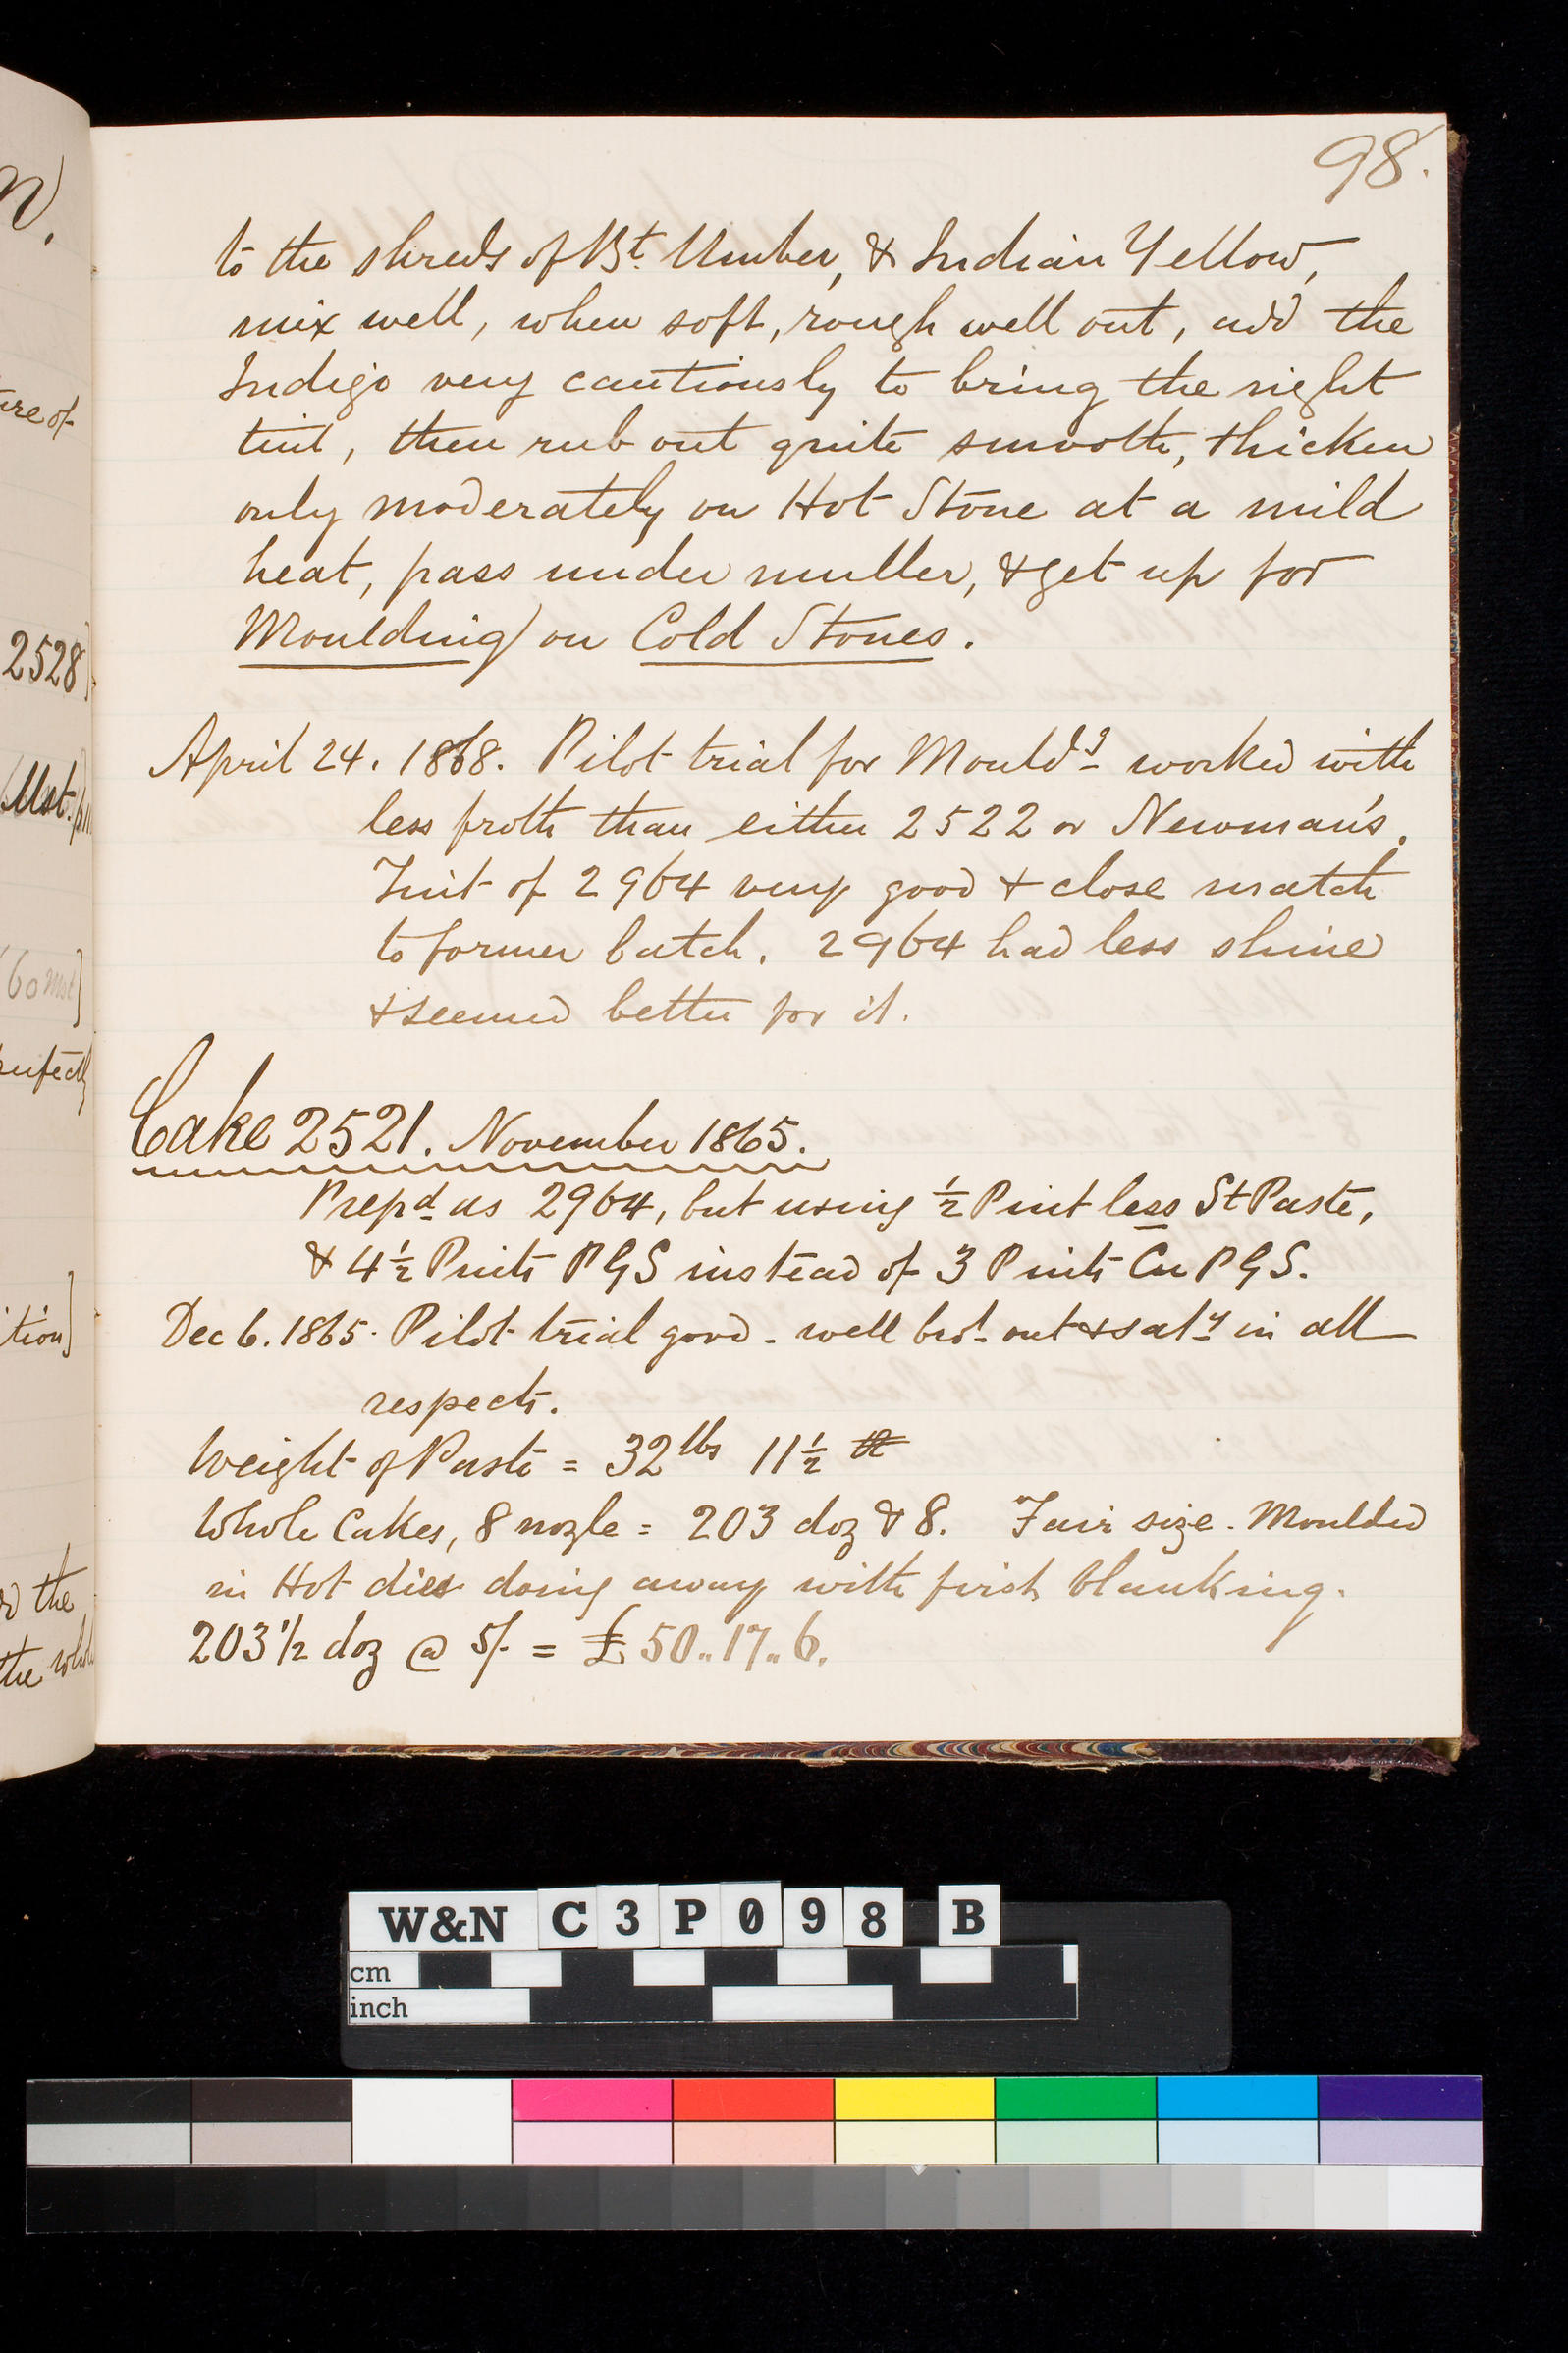 98.
to the shreds of Bt. Umber, & Indian Yellow,
mix well, when soft, rough well out, add the
Indigo very cautiously to bring the right
tint, then rub out quite smooth, thicken
only moderately on Hot Stone at a mild
heat, pass under muller, & get up for
Moulding on Cold Stones.
April 24. 1868. Pilot trial for Mouldg worked with
less froth than either 2522 or Newman's.
Tint of 2964 very good & close match
to former batch. 2964 had less shine
& seemed better for it.
Cake 2521. November 1865.
Prepd as 2964, but using ½ Pint less St Paste,
& 4½ Pints PGS instead of 3 Pints Cu PGS.
Dec 6. 1865. Pilot trial good - well brot out & saty in all
respects.
Weight of Paste = 32 lbs 11½
Whole Cakes, 8 nozle = 203 doz & 8. Fair size. Moulded
in Hot dies doing away with first blanking.
203 1/2 doz @ 5/- = £50..17..6.
n.
ure of
2528]
Mst.
60 Mst]
perfectly
ition]
the
the whole
W&N C3P098 B
cm
inch